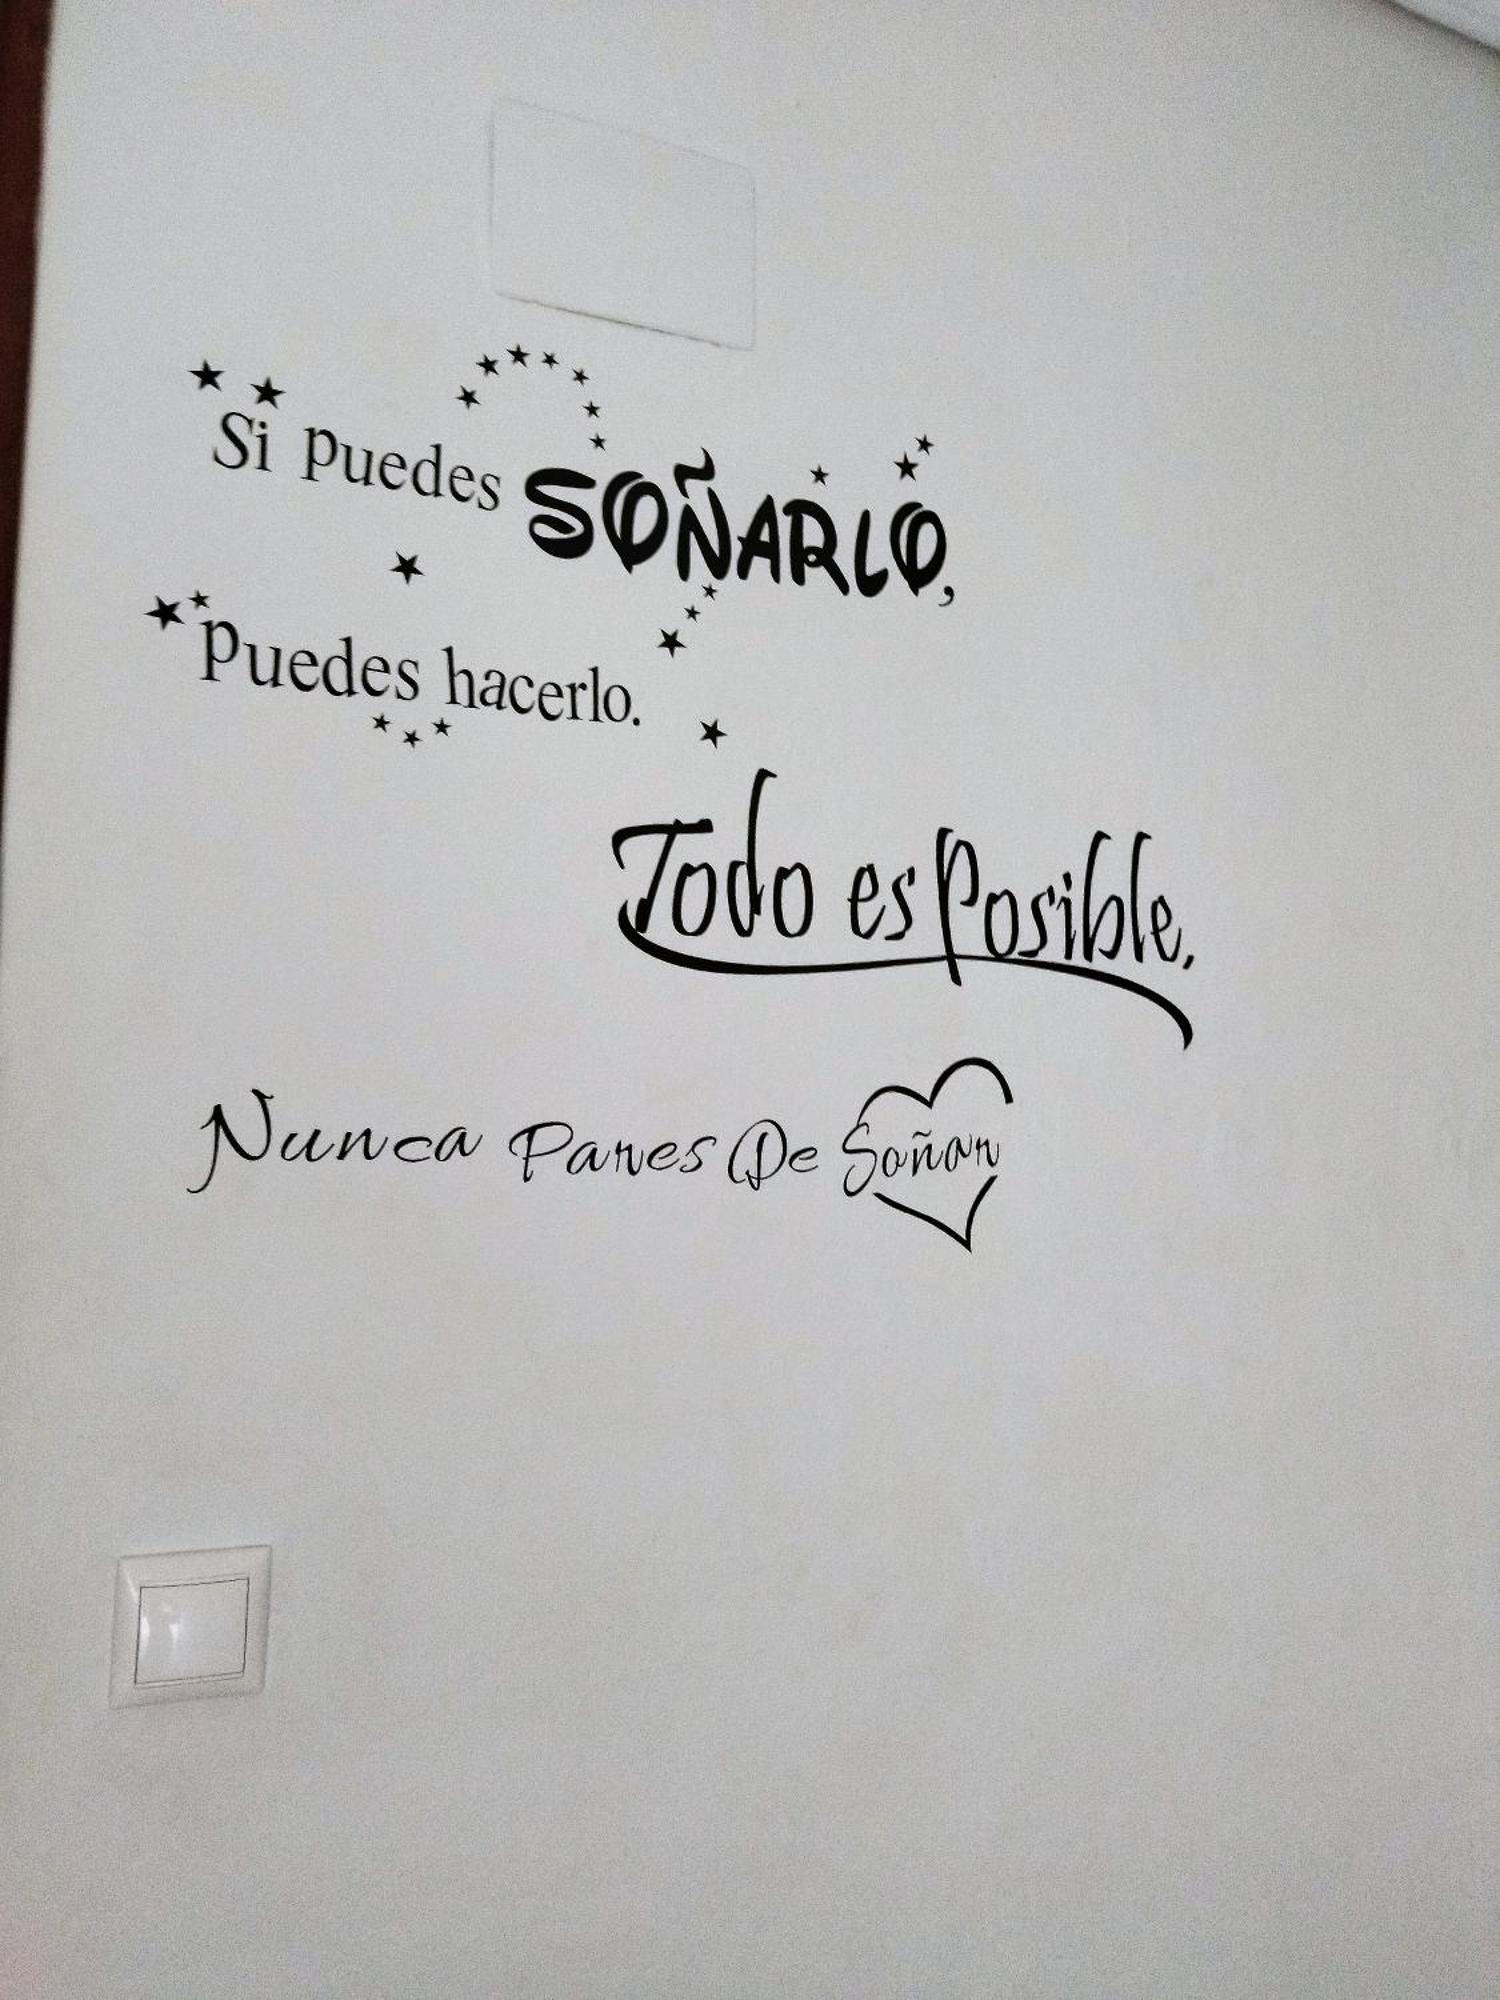 Si puedes SOÑARLO,
puedes hacerlo.
Todo es Posible.
Nunca Pares De Soñar